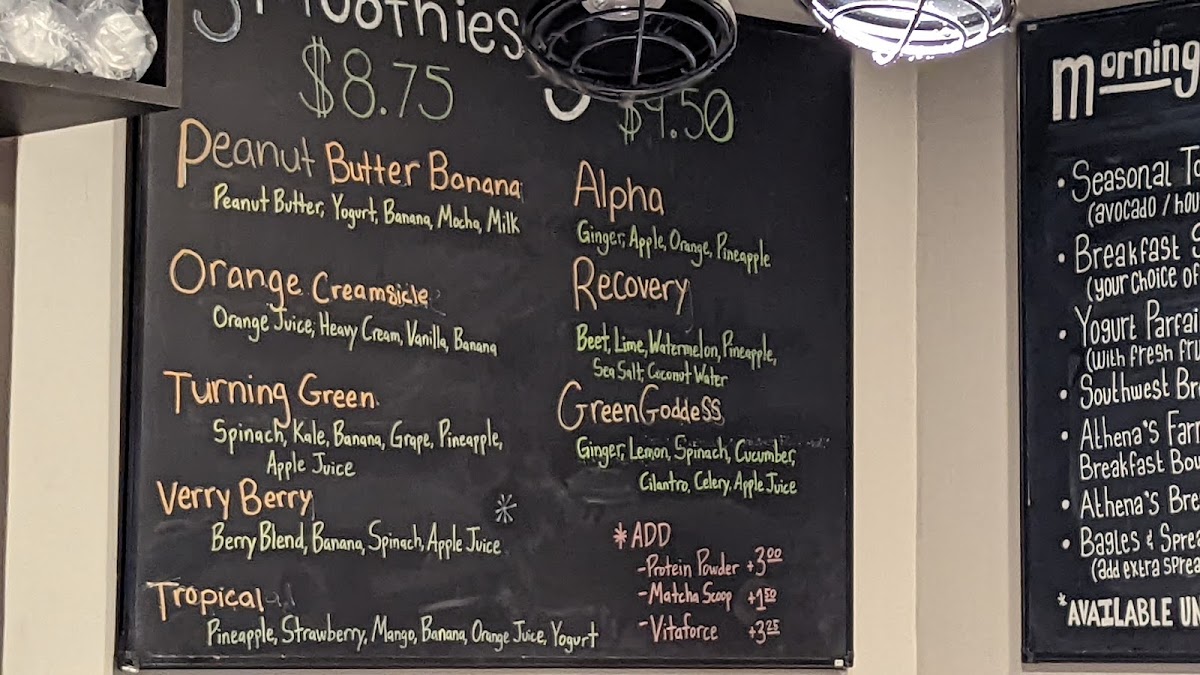 Smoothies
$8.75
Peanut Butter Banana
Peanut Butter, Yogurt, Banana, Mocha, Milk
Orange Creamsicle
Orange Juice, Heavy Cream, Vanilla, Banana
Turning Green
Spinach, Kale, Banana, Grape, Pineapple,
Apple Juice
Verry Berry
*
Berry Blend, Banana, Spinach, Apple Juice
Tropical
Pineapple, Strawberry, Mango, Banana, Orange Juice, Yogurt
$9.50
Alpha
Ginger, Apple, Orange, Pineapple
Recovery
Beet, Lime, Watermelon, Pineapple,
Sea Salt, Coconut Water
Green Goddess
Ginger, Lemon, Spinach, Cucumber,
Cilantro, Celery, Apple Juice
*ADD
-Protein Powder +3.00
-Matcha Scoop +1.50
-Vitaforce +3.25
Morning
• Seasonal To
(avocado / hou
• Breakfast S
(your choice of
• Yogurt Parfai
(with fresh fru
• Southwest Br
• Athena's Farm
Breakfast Bow
• Athena's Bre
• Bagles & Sprea
(add extra sprea
*AVAILABLE UN